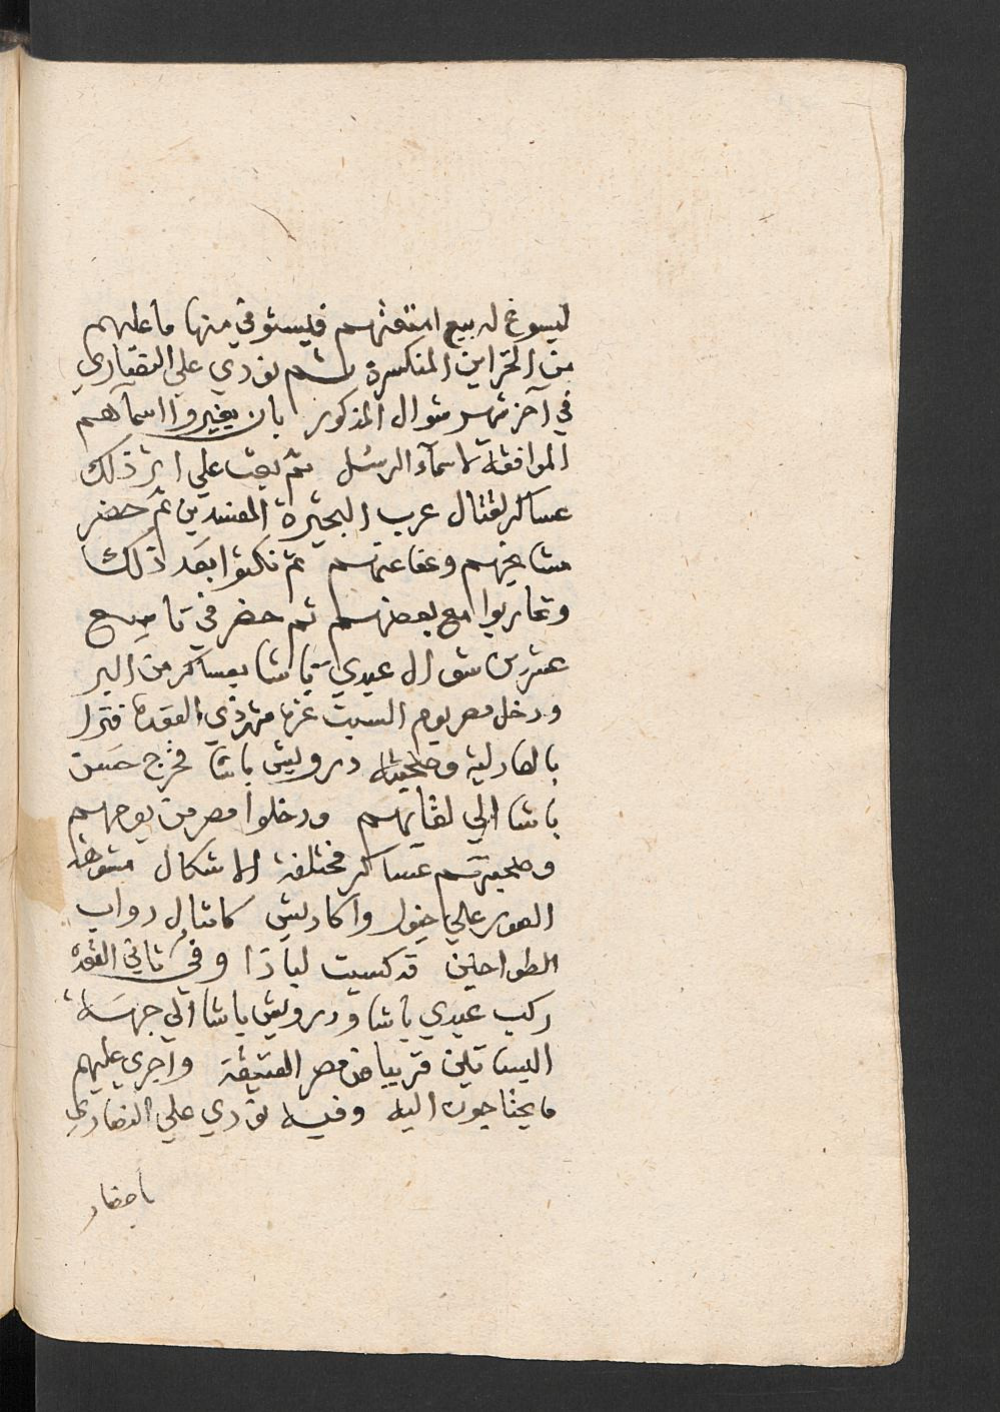 ليسوغ له بيع امتعتهم فيستوفي منها ما عليهم
من الخزاين المنكسرة ثم نودي علي النصاري
في آخر شهر شوال المذكور بان يغيروا اسمآهم
الموافقة لاسمآء الرسل ثم بعث علي اثر ذلك
عساكر لقتال عرب البحيرة المفسدين ثم حضر
مشايخهم وعفا عنهم ثم نكثوا بعد ذلك
وتحاربوا مع بعضهم ثم حضر في تاسع
عشرين شوال عبدي باشا بعساكر من البر
ودخل مصر يوم السبت غرة شهر ذي القعدة فنزل
بالعادلية وصحبته درويش باشا فخرج حسن
باشا الي لقايهم ودخلوا مصر من يومهم
وصحبتهم عساكر مختلفة الاشكال مشوهة
الصور علي خيول واكاديش كامثال دواب
الطواحين قد كسيت لبادا وفي ثاني القعدة
ركب عبدي باشا ودرويش باشا الي جهة
البساتين قريبا من مصر العتيقة واجري عليهم
ما يحتاجون اليه وفيه نودي علي النصاري
باحضار